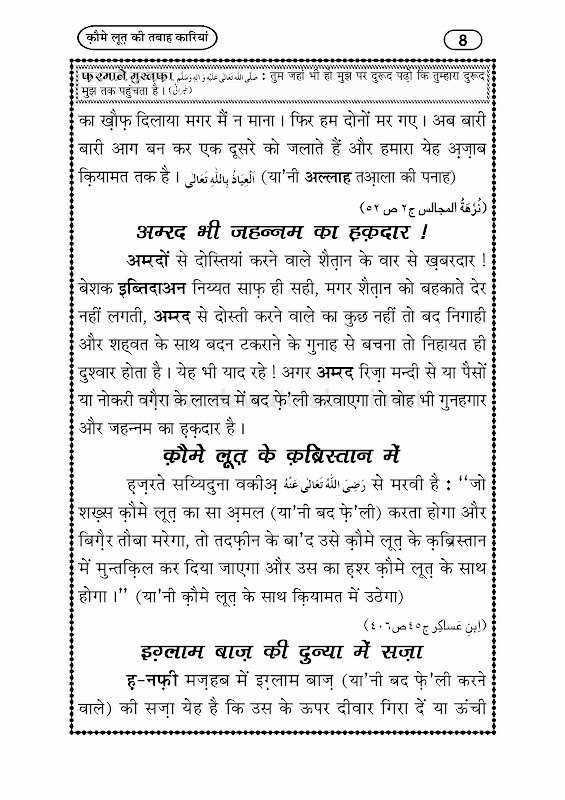 क़ौमे लूत़ की तबाह कारियां
8
फ़रमाने मुस्त़फ़ा صَلَّى اللهُ تَعَالٰى عَلَيْهِ وَاٰلِهٖ وَسَلَّم : तुम जहां भी हो मुझ पर दुरूद पढ़ो कि तुम्हारा दुरूद
मुझ तक पहुंचता है । (طبرانی)
का ख़ौफ़ दिलाया मगर मैं न माना । फिर हम दोनों मर गए । अब बारी
बारी आग बन कर एक दूसरे को जलाते हैं और हमारा येह अ़ज़ाब
क़ियामत तक है । اَلْعِيَاذُ بِاللّٰهِ تَعَالٰى (या'नी अल्लाह तआ़ला की पनाह)
(نُزْهَةُ المجالس ج٢ ص ٥٢)
अम्रद भी जहन्नम का ह़क़दार !
अम्रदों से दोस्तियां करने वाले शैत़ान के वार से ख़बरदार !
बेशक इब्तिदाअन निय्यत साफ़ ही सही, मगर शैत़ान को बहकाते देर
नहीं लगती, अम्रद से दोस्ती करने वाले का कुछ नहीं तो बद निगाही
और शह्वत के साथ बदन टकराने के गुनाह से बचना तो निहायत ही
दुश्वार होता है । येह भी याद रहे ! अगर अम्रद रिज़ा मन्दी से या पैसों
या नोकरी वग़ैरा के लालच में बद फ़े'ली करवाएगा तो वोह भी गुनहगार
और जहन्नम का ह़क़दार है ।
क़ौमे लूत़ के क़ब्रिस्तान में
ह़ज़रते सय्यिदुना वकीअ़ رَضِىَ اللهُ تَعَالٰى عَنْهُ से मरवी है : ‘‘जो
शख़्स क़ौमे लूत़ का सा अ़मल (या'नी बद फ़े'ली) करता होगा और
बिग़ैर तौबा मरेगा, तो तदफ़ीन के बा'द उसे क़ौमे लूत़ के क़ब्रिस्तान
में मुन्तक़िल कर दिया जाएगा और उस का ह़श्र क़ौमे लूत़ के साथ
होगा ।’’ (या'नी क़ौमे लूत़ के साथ क़ियामत में उठेगा)
(اِبنِ عَساکِر ج٤٥ ص٤٠٦)
इग़्लाम बाज़ की दुन्या में सज़ा
ह़-नफ़ी मज़हब में इग़्लाम बाज़ (या'नी बद फ़े'ली करने
वाले) की सज़ा येह है कि उस के ऊपर दीवार गिरा दें या ऊंची